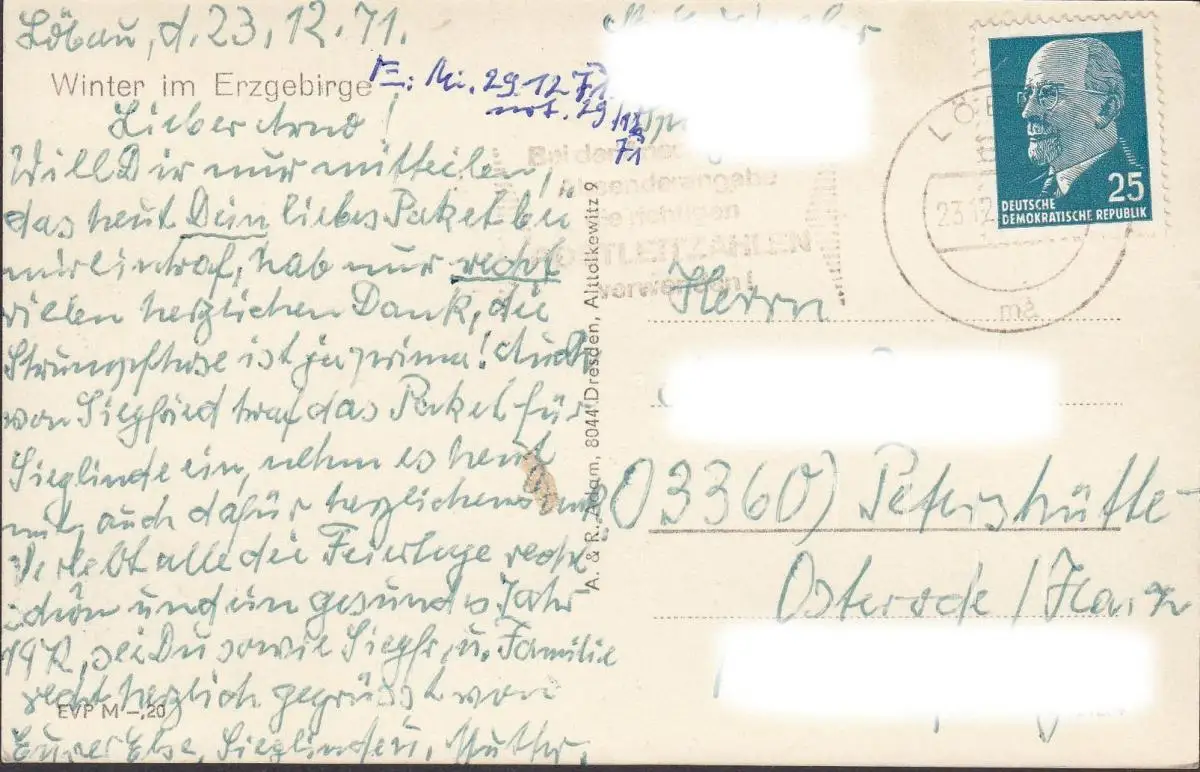 Löbau, d. 23.12.71.
Winter im Erzgebirge
E: Mi. 29.12.71
29/12
71
Lieber Arno!
Will Dir nur mitteilen,
das heut Dein liebes Paket bei
mir eintraf, hab nur recht
vielen herzlichen Dank, die
Strumpfhose ist ja prima! Auch
von Siegfried traf das Paket für
Sieglinde ein, nehm es heut
mit, auch dafür herzlichen
Verlebt alle die Feiertage recht
schön und ein gesundes Jahr
1972, sei Du sowie Siegfr. u. Familie
recht herzlich gegrüsst von
EVP M -,20
Eurer Else, Sieglinde u. Mutter.
A. & R. Adam, 8044 Dresden, Alttolkewitz 9
Bei der
Absenderangabe
die richtigen
POSTLEITZAHLEN
verwenden!
23.12
må
25
DEUTSCHE
DEMOKRATISCHE REPUBLIK
Herrn
(03360) Petershütte-
Osterode / Harz